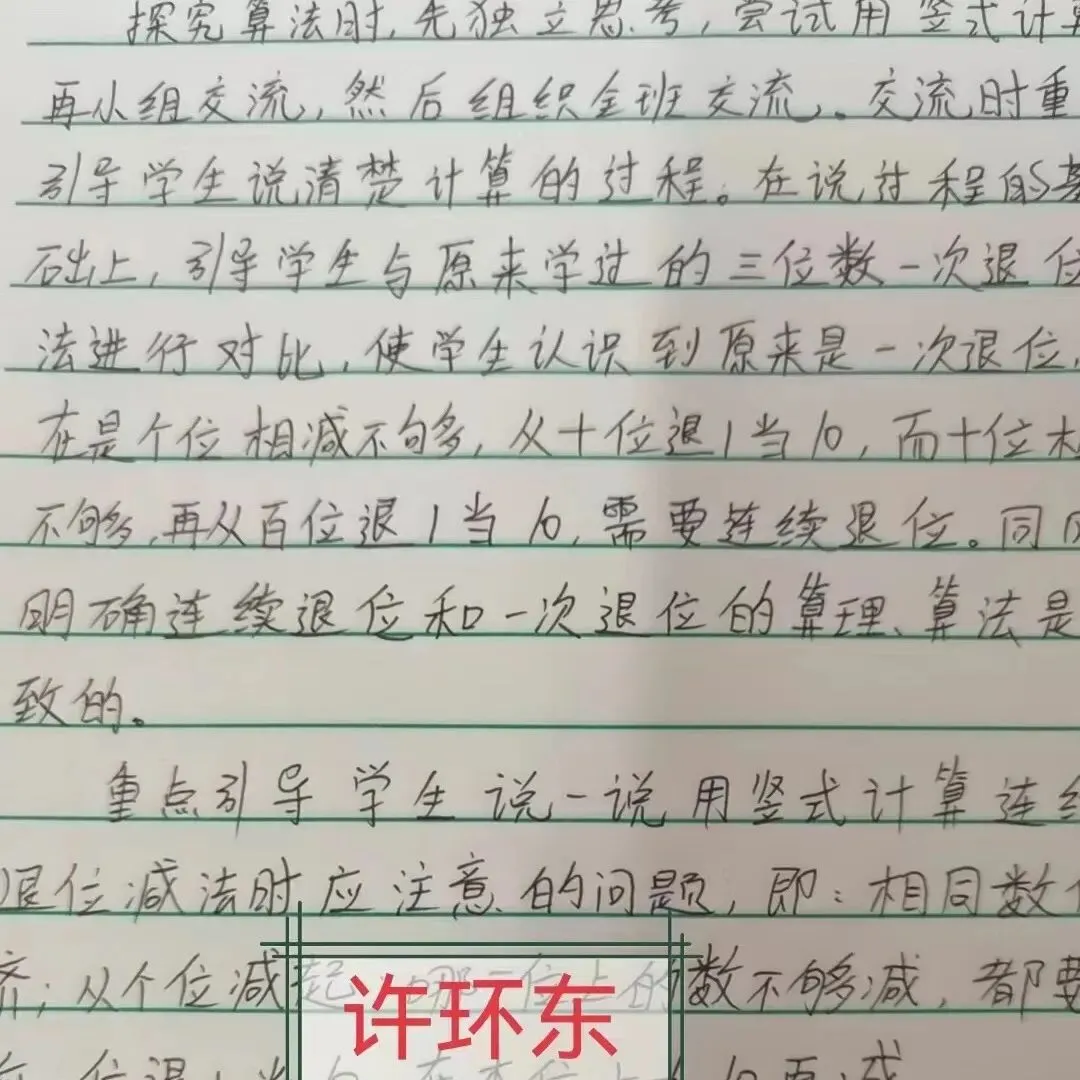 探究算法时,先独立思考,尝试用竖式计算
再小组交流,然后组织全班交流。交流时重
引导学生说清楚计算的过程。在说过程的基
础上,引导学生与原来学过的三位数一次退位
法进行对比,使学生认识到原来是一次退位,
在是个位相减不够多,从十位退1当10,而十位相
不够多,再从百位退1当10,需要连续退位。同时
明确连续退位和一次退位的算理、算法是
致的。
重点引导学生说一说用竖式计算连续
退位减法时应注意的问题,即:相同数位
齐;从个位减起 哪一位上的数不够减,都要
位退1当10,在本位上 10再减
许环东